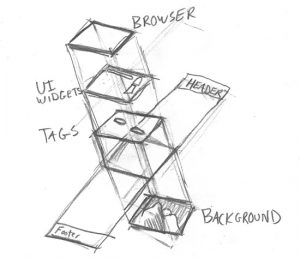 BROWSER
UI
WIDGETS
HEADER
TAGS
BACKGROUND
Footer